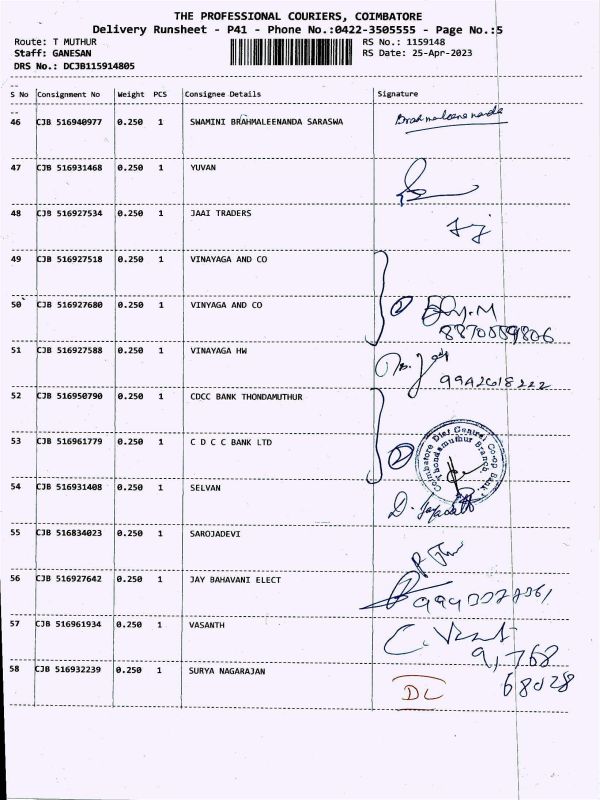 THE PROFESSIONAL COURIERS, COIMBATORE
Delivery Runsheet - P41 - Phone No.:0422-3505555 - Page No.:5
Route: T MUTHUR RS No.: 1159148
Staff: GANESAN RS Date: 25-Apr-2023
DRS No.: DCJB115914805
S No Consignment No Weight PCS Consignee Details Signature
46 CJB 516940977 0.250 1 SWAMINI BRAHMALEENANDA SARASWA Brahmaleenananda
47 CJB 516931468 0.250 1 YUVAN
48 CJB 516927534 0.250 1 JAAI TRADERS
49 CJB 516927518 0.250 1 VINAYAGA AND CO
50 CJB 516927680 0.250 1 VINYAGA AND CO 2
8870059806
51 CJB 516927588 0.250 1 VINAYAGA HW
52 CJB 516950790 0.250 1 CDCC BANK THONDAMUTHUR
53 CJB 516961779 0.250 1 C D C C BANK LTD 2
Coimbatore Dist Central Co-op Bank
Thondamuthur Branch
54 CJB 516931408 0.250 1 SELVAN
55 CJB 516834023 0.250 1 SAROJADEVI
56 CJB 516927642 0.250 1 JAY BAHAVANI ELECT
57 CJB 516961934 0.250 1 VASANTH
9,768
58 CJB 516932239 0.250 1 SURYA NAGARAJAN DL 68028